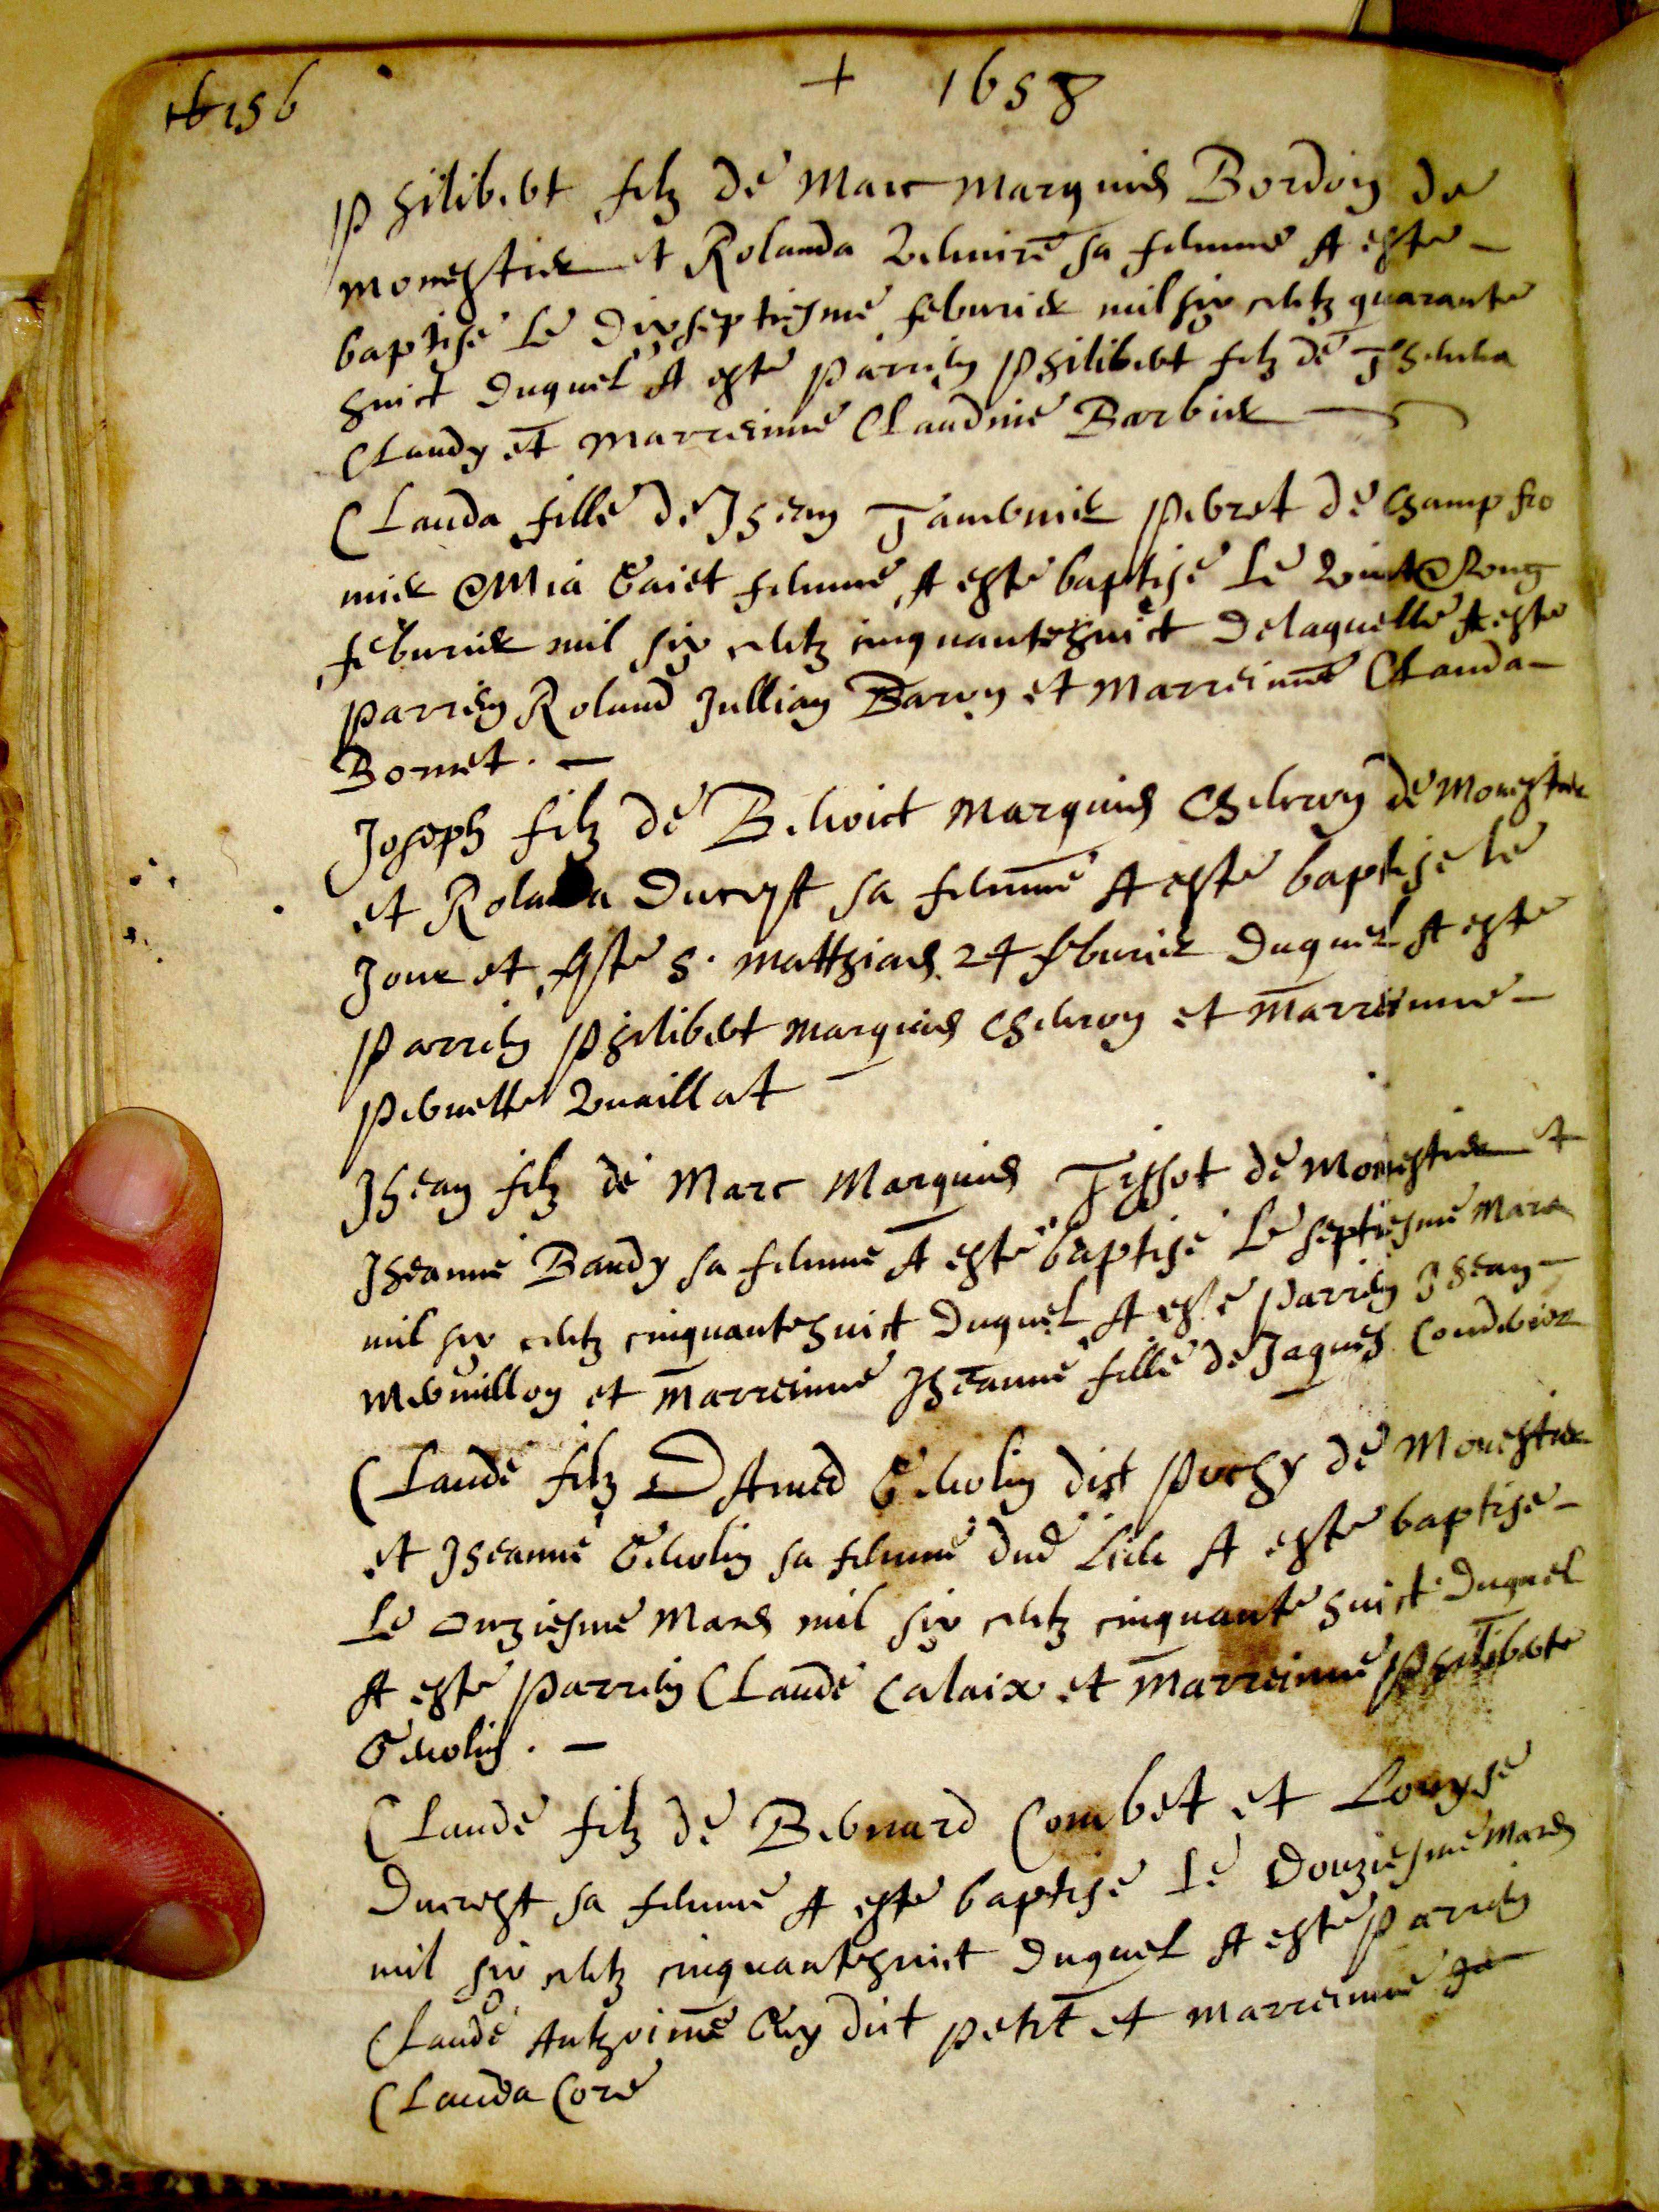 156
+ 1658
Philibert filz de Marc Marquis Bordon de
Monestier et Rolanda sa femme A este
baptise le dixseptiesme feburier mil six centz quarante
huict duquel A este parrin Philibert filz de
Claudy et marreinne Claudine Barbier
Clauda fille de Jhean Tauernier Perret de Champfro
mier & Mia sa femme A este baptise le vint &
feburier mil six centz cinquantehuict delaquelle A este
parrein Roland Jullian et Marreinne Clauda
Bornet.
Joseph filz de Benoict Marquis de Monestier
et Rolanda Ducrest sa femme A este baptise le
Jour et feste S. Matthias 24 feburier duquel A este
parrein Philibert Marquis et marreinne
Pernette Vuaillat
Jhean filz de Marc Marquis Tissot de Monestier et
Jheanne Baudy sa femme A este baptise le septiesme Mars
mil six centz cinquantehuict duquel A este parrein Jhean
Mermillon et marreinne Jheanne fille de Jaques Coudurier
Claude filz D Amed Genolin dict de Monestier
et Jheanne Genolin sa femme dud lieu A este baptise
le onziesme Mars mil six centz cinquante huict duquel
A este parrein Claude Calaix et marreinne Philiberte
Genolin.
Claude filz de Bernard Combet et Louyse
Ducrest sa femme A este baptise le douziesme Mars
mil six centz cinquantehuict duquel A este parrein
Claude Anthoinne dict petit et marreinne
Clauda Core